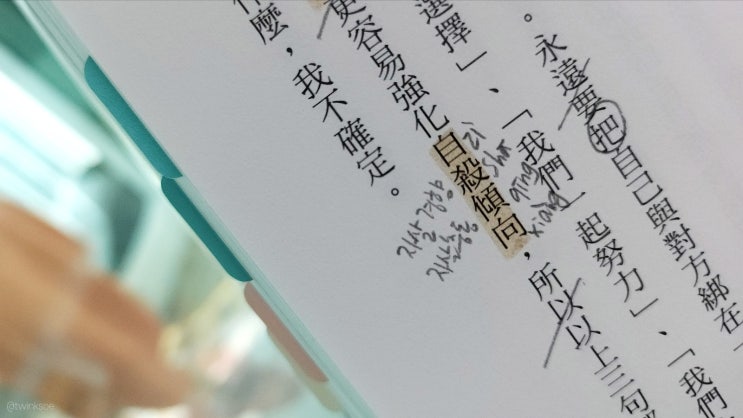 。永遠要把自己與對方綁在
選擇」、「我們一起努力」、「我們
更容易強化自殺傾向，所以以上三句
什麼，我不確定。
zi
sha
qing
xiang
자살 경향
자살충동
@twinksoe